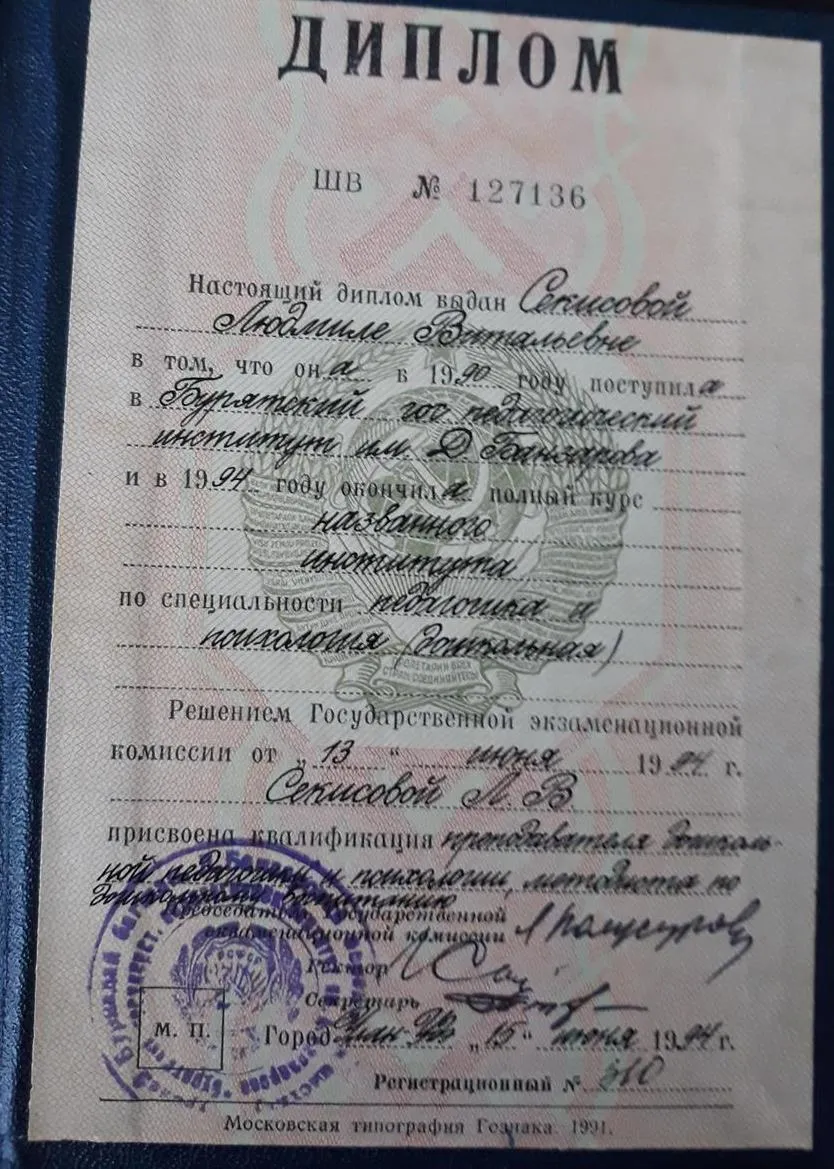 ДИПЛОМ
ШВ № 127136
Настоящий диплом выдан Секисовой
Людмиле Витальевне
в том, что она в 1990 году поступила
в Бурятский гос педагогический
институт им. Д Банзарова
и в 1994 году окончила полный курс
названного
института
по специальности педагогика и
психология (дошкольная)
Решением Государственной экзаменационной
комиссии от „13“ июня 1994 г.
Секисовой Л. В
присвоена квалификация преподавателя дошколь-
ной педагогики и психологии, методиста по
дошкольному воспитанию
Председатель Государственной
экзаменационной комиссии
Ректор
Секретарь
М. П.
Город Улан-Удэ „15“ июня 1994 г.
Регистрационный № 310
Московская типография Гознака. 1991.
ПРОЛЕТАРИИ ВСЕХ
СТРАН, СОЕДИНЯЙТЕСЬ!
РСФСР